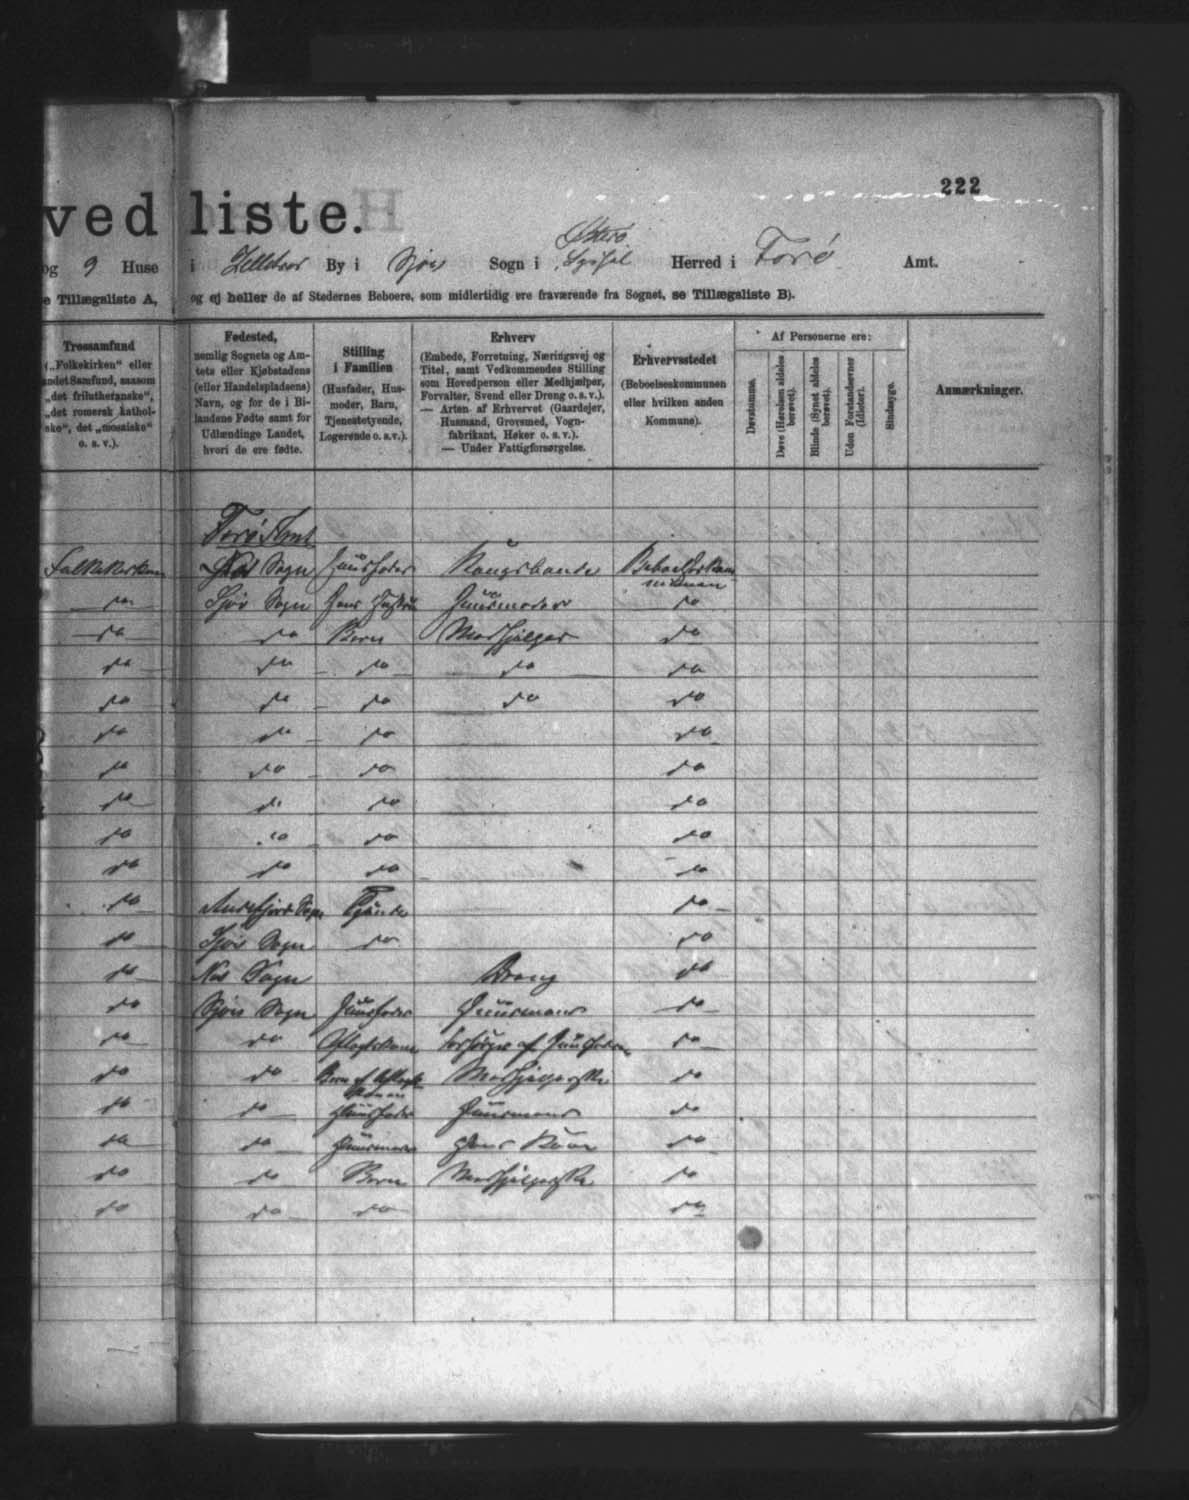 222
ved liste.
Østerø
og 9 Huse i Zelletræ By i Sjov Sogn i Syssel Herred i Forø Amt.
e Tillægsliste A, og ej heller de af Stedernes Beboere, som midlertidig ere fraværende fra Sognet, se Tillægsliste B).
Trossamfund
(„Folkekirken“ eller
andet Samfund, saasom
„det frilutherske“,
„det romersk kathol-
ske“, det „mosaiske“
o. s. v.).
Fødested,
nemlig Sognets og Am-
tets eller Kjøbstadens
(eller Handelspladsens)
Navn, og for de i Bi-
landene Fødte samt for
Udlændinge Landet,
hvori de ere fødte.
Stilling
i Familien
(Husfader, Hus-
moder, Barn,
Tjenestetyende,
Logerende o. s. v.).
Erhverv
(Embede, Forretning, Næringsvej og
Titel, samt Vedkommendes Stilling
som Hovedperson eller Medhjælper,
Forvalter, Svend eller Dreng o. s. v.).
— Arten af Erhvervet (Gaardejer,
Husmand, Grovsmed, Vogn-
fabrikant, Høker o. s. v.).
— Under Fattigforsørgelse.
Erhvervsstedet
(Beboelseskommunen
eller hvilken anden
Kommune).
Af Personerne ere:
Døvstumme.
Døve (Hørelsen aldeles
berøvet).
Blinde (Synet aldeles
berøvet).
Uden Forstandsevner
(Idioter).
Sindssyge.
Anmærkninger.
Forø Amt
Nes Sogn Huusfader Kongsbonde
do Sjov Sogn Hans Huusmoder do
do do Børn Medhjelper do
do do do do do
do do do do do
do do do do
do do do do
do do do do
do do do do
do do do do
do Sogn Tjende do
do Sjov Sogn do do
do Nes Sogn Dreng do
do Sjov Sogn Huusfader Huusmand do
do do Aftægtskone forsørges af Huusfaderen do
do do Børn af Aftægts
konen do
do do Huusfader Huusmand do
do do Huusmoder Hans Kone do
do do Børn do
do do do do